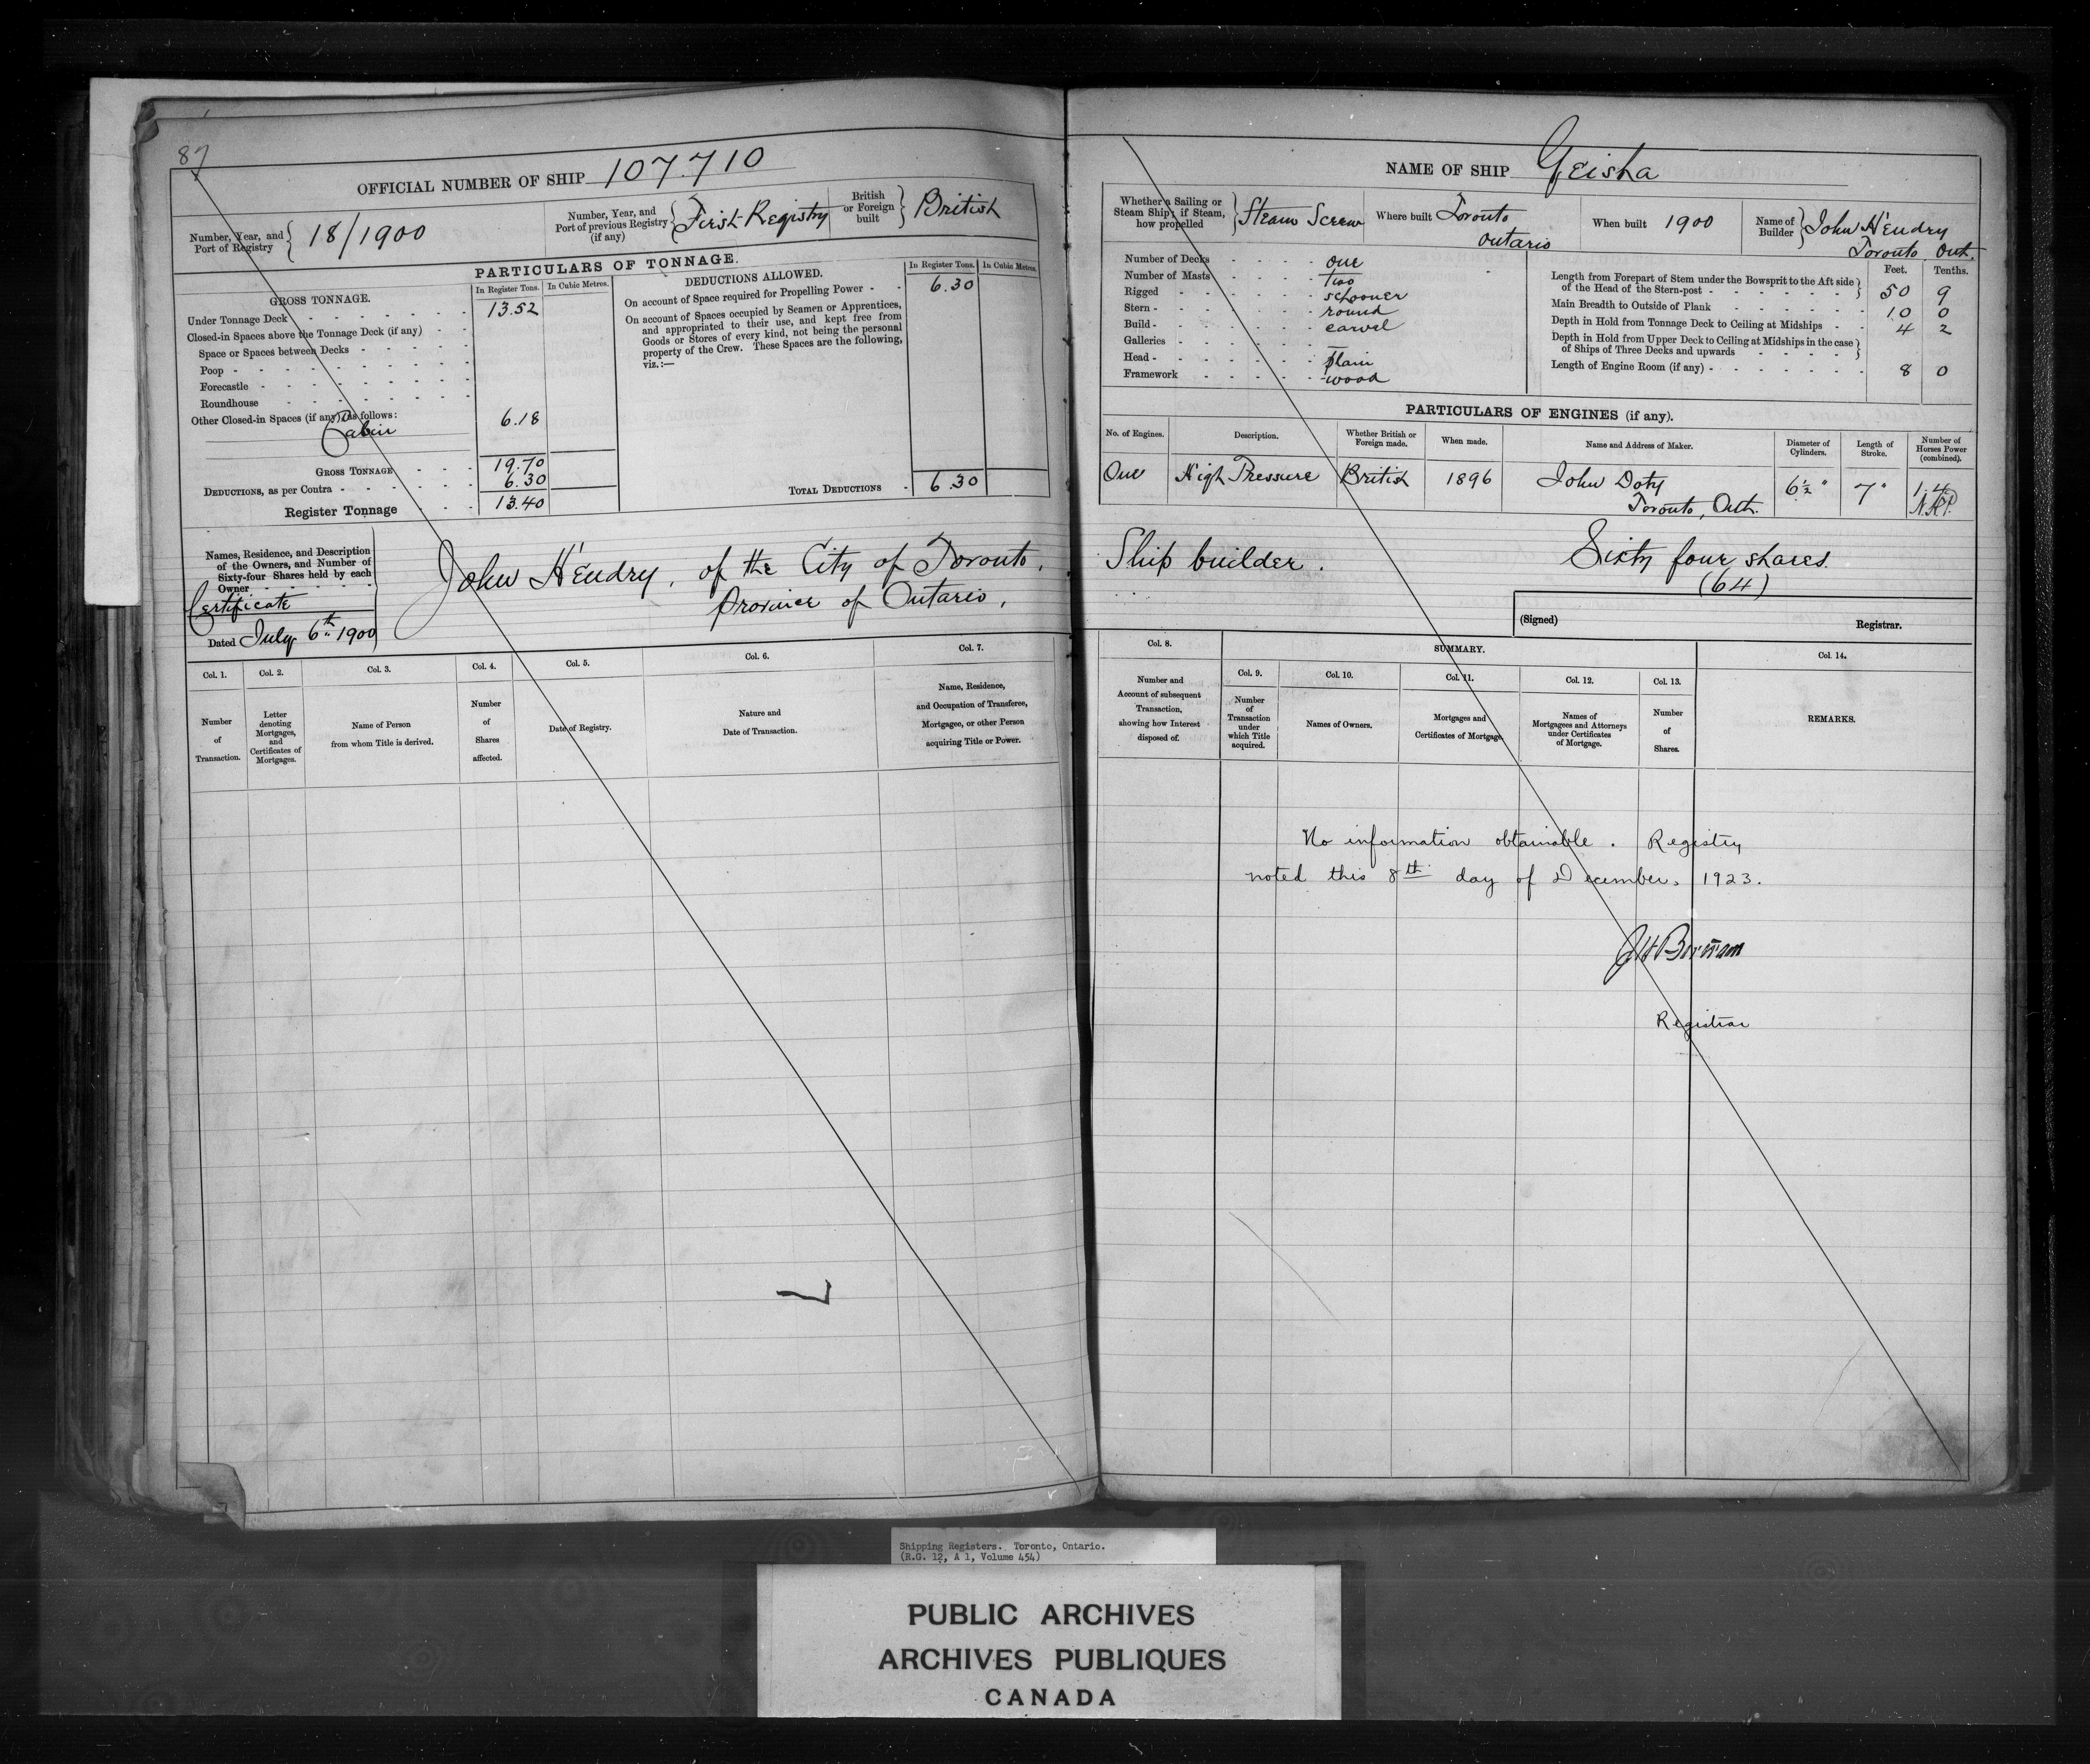 87
OFFICIAL NUMBER OF SHIP 107.710
Number, Year, and Port of Registry 18/1900
Number, Year, and Port of previous Registry (if any) First Registry
British or Foreign built British
PARTICULARS OF TONNAGE.
GROSS TONNAGE. In Register Tons. In Cubic Metres.
Under Tonnage Deck 13.52
Closed-in Spaces above the Tonnage Deck (if any)
Space or Spaces between Decks
Poop
Forecastle
Roundhouse
Other Closed-in Spaces (if any), as follows: 6.18
Cabin
GROSS TONNAGE 19.70
DEDUCTIONS, as per Contra 6.30
Register Tonnage 13.40
DEDUCTIONS ALLOWED. In Register Tons. In Cubic Metres.
On account of Space required for Propelling Power 6.30
On account of Spaces occupied by Seamen or Apprentices,
and appropriated to their use, and kept free from
Goods or Stores of every kind, not being the personal
property of the Crew. These Spaces are the following,
viz.:—
TOTAL DEDUCTIONS 6.30
Names, Residence, and Description
of the Owners, and Number of
Sixty-four Shares held by each
Owner
Certificate
Dated July 6th 1900
John Hendry, of the City of Toronto,
Province of Ontario,
Col. 1. Col. 2. Col. 3. Col. 4. Col. 5. Col. 6. Col. 7.
Number of Transaction.
Letter denoting Mortgages, and Certificates of Mortgages.
Name of Person from whom Title is derived.
Number of Shares affected.
Date of Registry.
Nature and Date of Transaction.
Name, Residence, and Occupation of Transferee, Mortgagee, or other Person acquiring Title or Power.
NAME OF SHIP Geisha
Whether a Sailing or Steam Ship; if Steam, how propelled Steam Screw
Where built Toronto Ontario
When built 1900
Name of Builder John Hendry Toronto, Ont.
Number of Decks one
Number of Masts two
Rigged schooner
Stern round
Build carvel
Galleries —
Head plain
Framework wood
Feet. Tenths.
Length from Forepart of Stem under the Bowsprit to the Aft side of the Head of the Stern-post 50 9
Main Breadth to Outside of Plank 10 0
Depth in Hold from Tonnage Deck to Ceiling at Midships 4 2
Depth in Hold from Upper Deck to Ceiling at Midships in the case of Ships of Three Decks and upwards
Length of Engine Room (if any) 8 0
PARTICULARS OF ENGINES (if any).
No. of Engines. Description. Whether British or Foreign made. When made. Name and Address of Maker. Diameter of Cylinders. Length of Stroke. Number of Horses Power (combined).
One High Pressure British 1896 John Doty 6½" 7" 1.4
Toronto, Ont. N.H.P.
Ship builder. Sixty four shares.
(64)
(Signed) Registrar.
Col. 8. SUMMARY. Col. 14.
Col. 9. Col. 10. Col. 11. Col. 12. Col. 13.
Number and Account of subsequent Transaction, showing how Interest disposed of.
Number of Transaction under which Title acquired.
Names of Owners.
Mortgages and Certificates of Mortgage.
Names of Mortgagees and Attorneys under Certificates of Mortgage.
Number of Shares.
REMARKS.
No information obtainable. Registry
noted this 8th day of December, 1923.
Registrar
Shipping Registers. Toronto, Ontario.
(R.G. 12, A 1, Volume 454)
PUBLIC ARCHIVES
ARCHIVES PUBLIQUES
CANADA